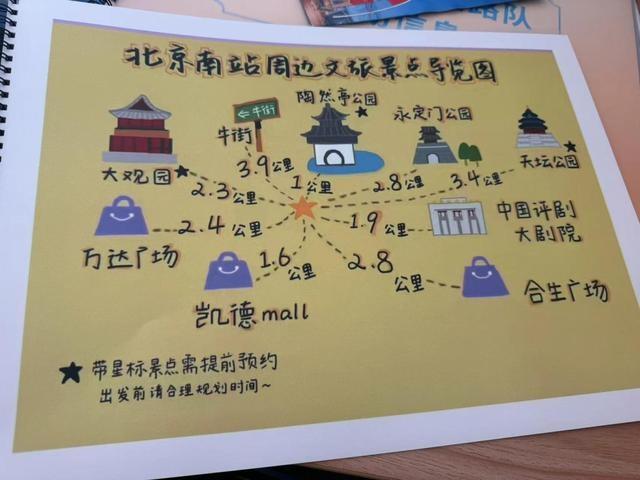 路队
信息
北京南站周边文旅景点导览图
陶然亭公园
永定门公园
←牛街
牛街
大观园
天坛公园
3.9公里
1公里
2.8公里
3.4公里
2.3公里
2.4公里
1.9公里
中国评剧
大剧院
万达广场
1.6公里
2.8公里
凯德mall
合生广场
带星标景点需提前预约
出发前请合理规划时间~